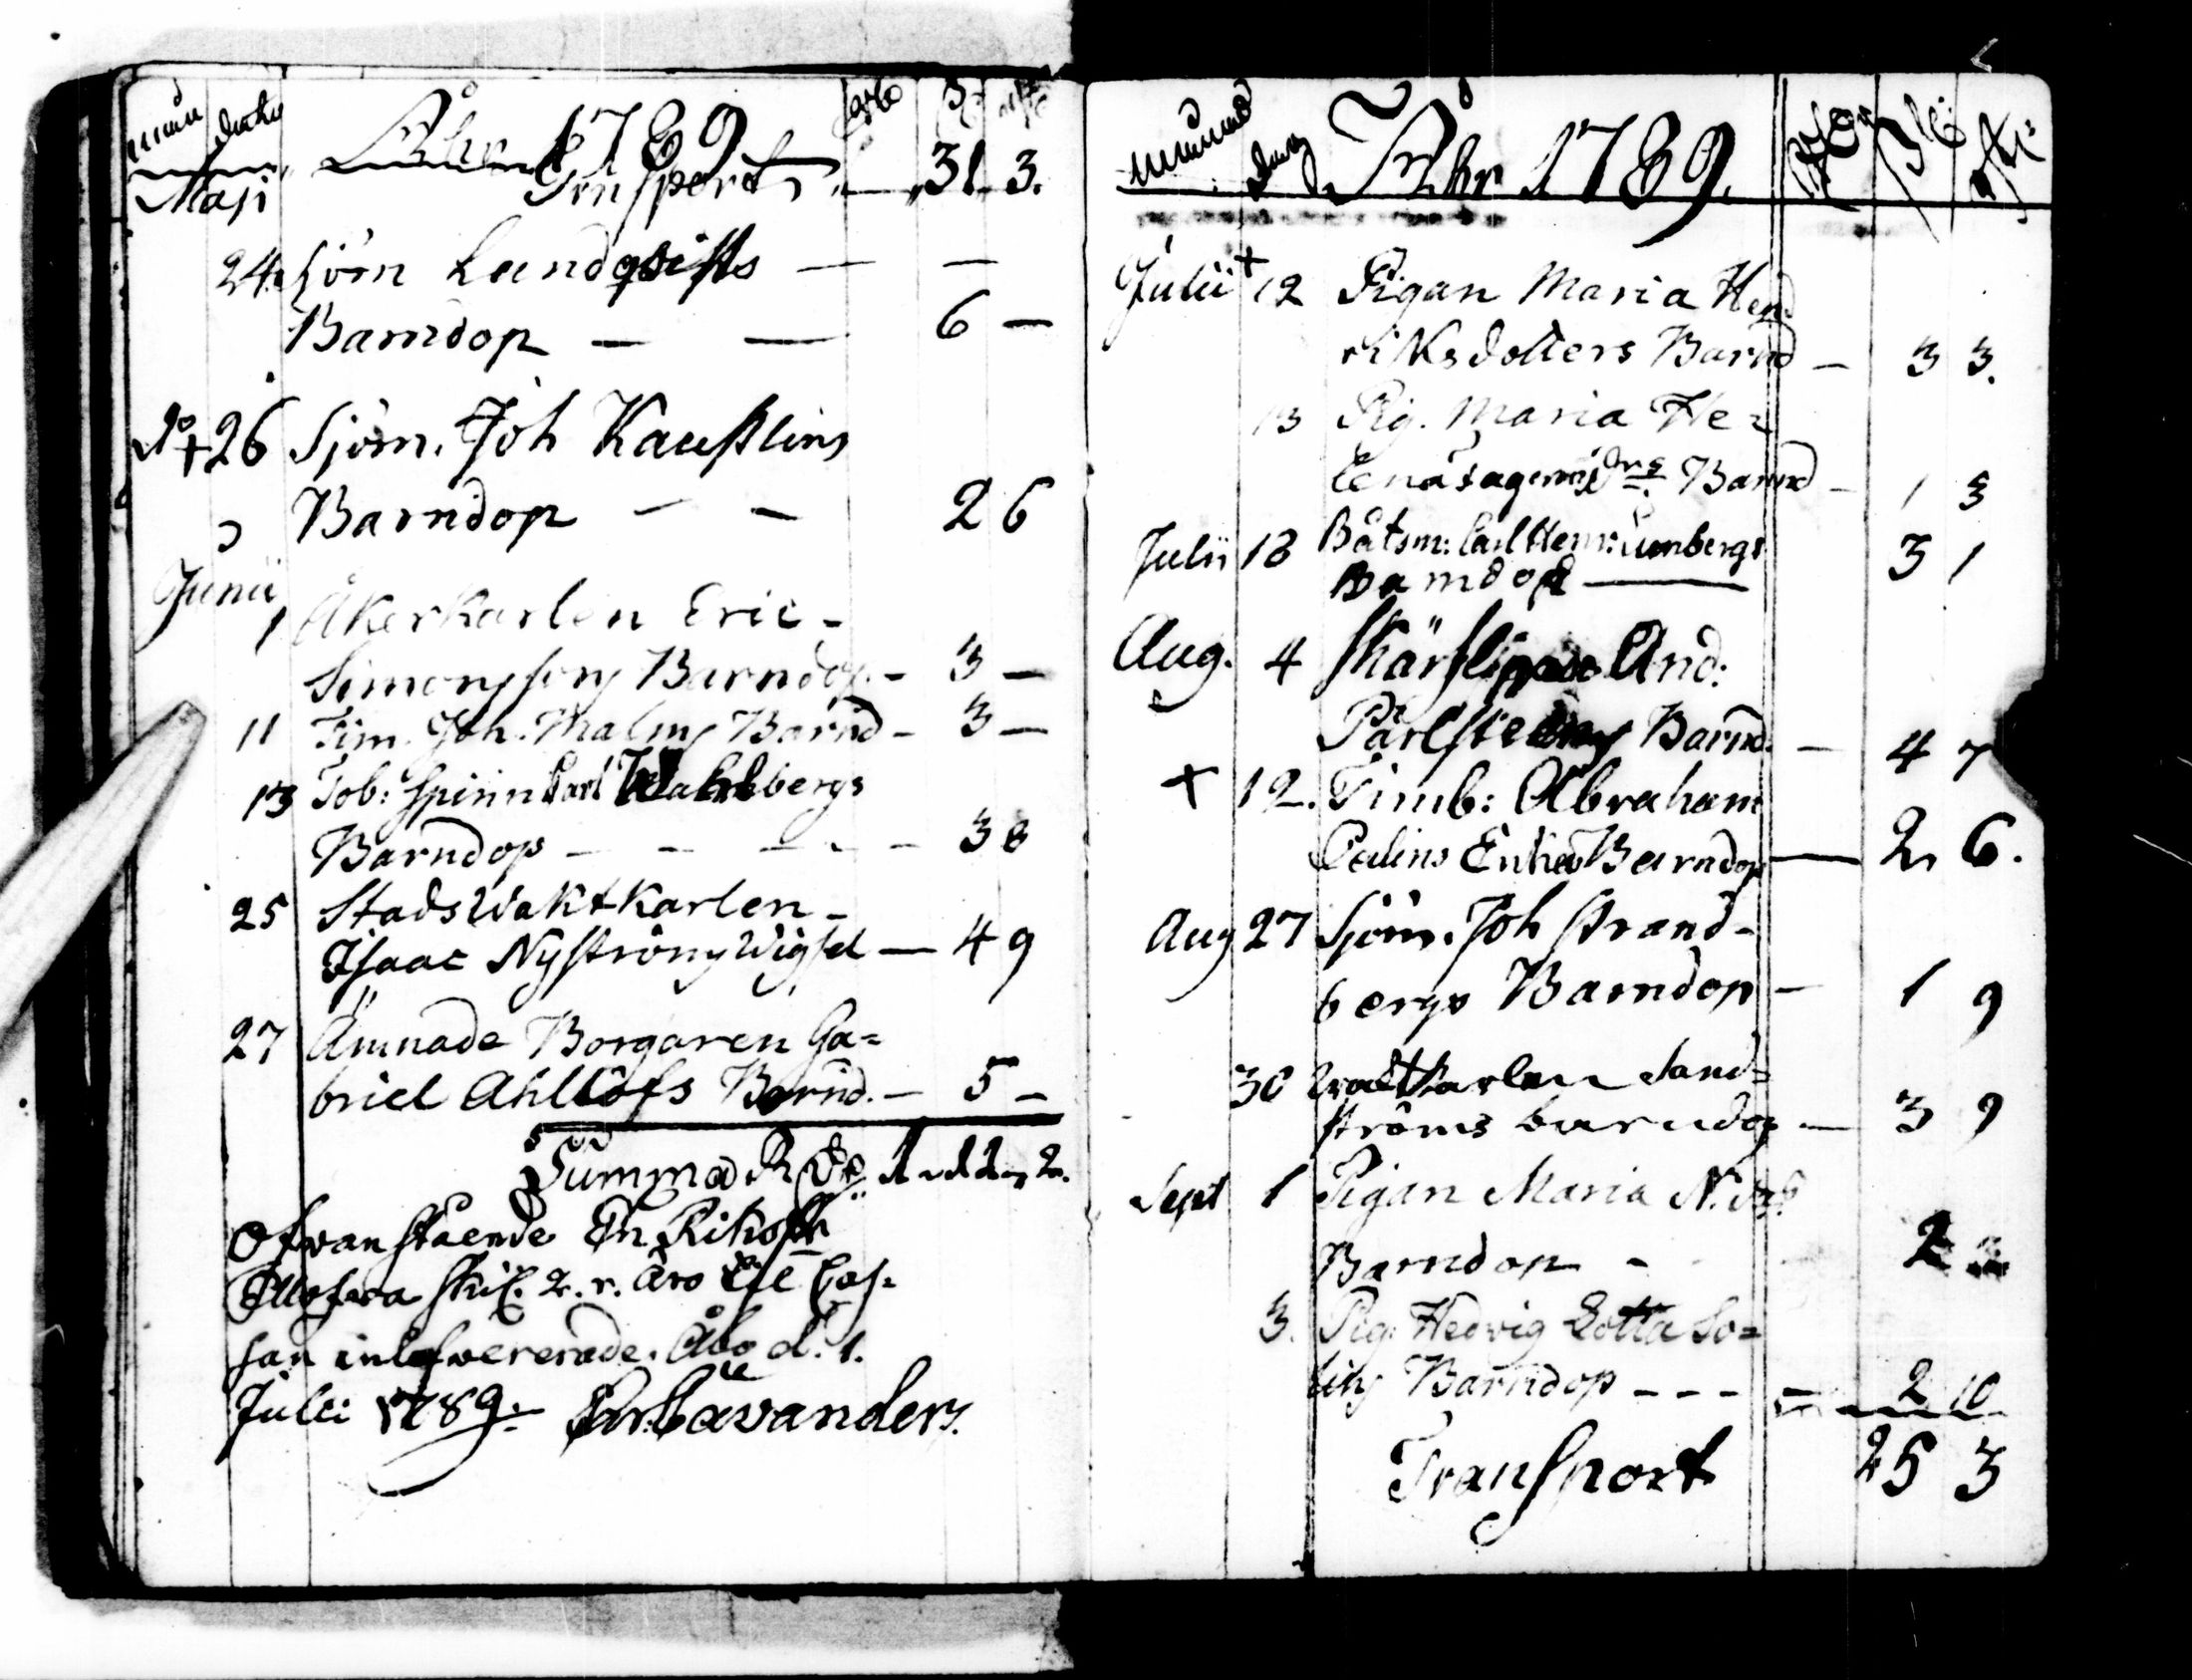 Åhr 1789
Transport 31 3.
Maji
24. Sjöm Lundqvists — —
Barndop — — 6 —
do + 26 Sjöm. Joh Kaustlins
Barndop — — 2 6
Junii
1 Åkerkarlen Eric -
Simonssons Barndop. - 3 —
11 Tim. Joh. Malms Barnd - 3 —
13 Tob: Spinn Karl Wahlbergs
Barndop - - - - - 3 8
25 StadsWaktkarlen -
Isaac Nyströms Wigsel — 4 9
27 Ämnade Borgaren Ga=
briel Ahllöfs Barnd. - 5 -
Summa R dr 1 " 11 " 2.
Ofvanstående En Riksdr
Ellofva Skil. 2. r. äro til Cas-
san inlefvererade. Åbo d. 1.
Julii 1789. Cavanders.
månad dag Åhr 1789.
Julii + 12 Pigan Maria Hend
riksdotters Barnd — 3 3.
13 Pig. Maria He=
lena drs Barnd - 1 3
Julii 18 Båtsm: Carl Henr: Limbergs
Barndop — 3 1
Aug. 4 Skärslipare And:
Pärlstedts Barnd. — 4 7
+ 12. Timb: Abraham
Palins Enkas Barndop — 2 6.
Aug 27 Sjöm. Joh Strand-
bergs Barndop — 1 9
30 Waktkarlen Sand=
ströms barndop — 3 9
Sept 1 Pigan Maria N. drs
Barndop - 2
3. Pig: Hedvig Lotta So=
lins Barndop - - - - 2 10
Transport 25 3